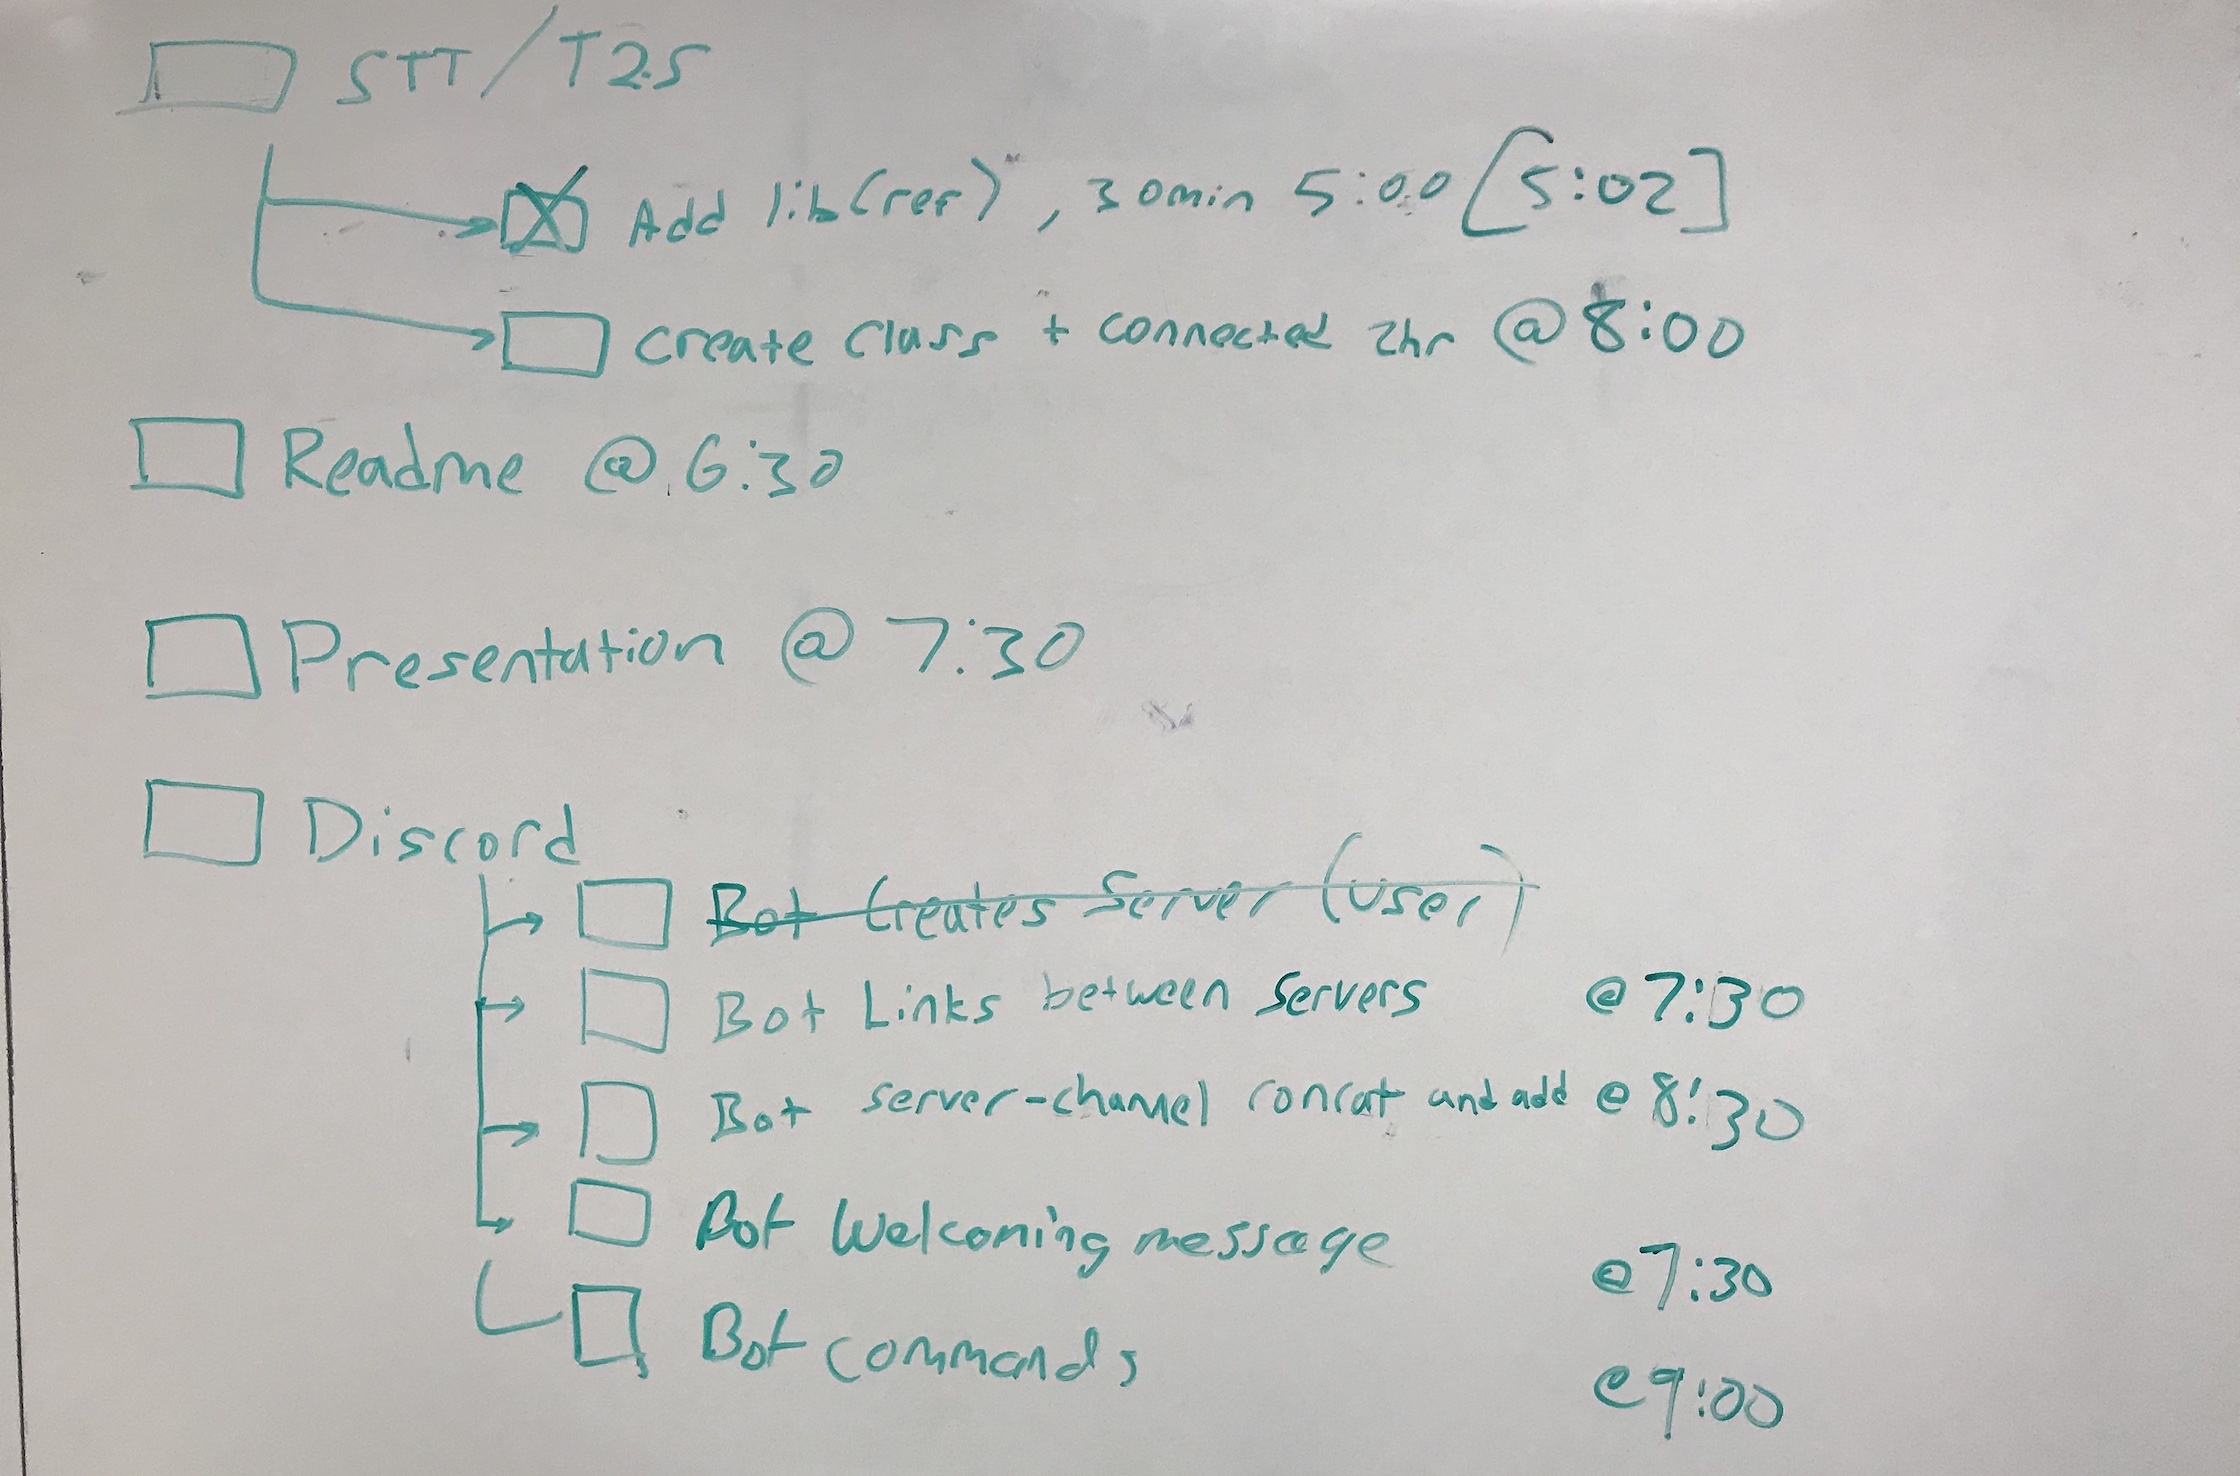 STT/T2S
Add lib(ref), 30min 5:00 [5:02]
create class + connected 2hr @ 8:00
Readme @ 6:30
Presentation @ 7:30
Discord
Bot Creates Server (User)
Bot Links between Servers @ 7:30
Bot server-channel concat and add @ 8:30
Bot Welcoming message @ 7:30
Bot commands @ 9:00